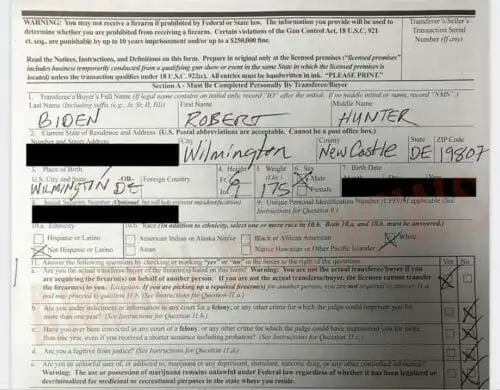 WARNING: You may not receive a firearm if prohibited by Federal or State law. The information you provide will be used to
determine whether you are prohibited from receiving a firearm. Certain violations of the Gun Control Act, 18 U.S.C. 921
et. seq., are punishable by up to 10 years imprisonment and/or up to a $250,000 fine.
Transferor's/Seller's
Transaction Serial
Number (If any)
Read the Notices, Instructions, and Definitions on this form. Prepare in original only at the licensed premises ("licensed premises"
includes business temporarily conducted from a qualifying gun show or event in the same State in which the licensed premises is
located) unless the transaction qualifies under 18 U.S.C. 922(c). All entries must be handwritten in ink. "PLEASE PRINT."
Section A - Must Be Completed Personally By Transferee/Buyer
1. Transferee's/Buyer's Full Name (If legal name contains an initial only, record "IO" after the initial. If no middle initial or name, record "NMN".)
Last Name (Including suffix (e.g., Jr, Sr, II, III)) First Name Middle Name
BIDEN ROBERT HUNTER
2. Current State of Residence and Address (U.S. Postal abbreviations are acceptable. Cannot be a post office box.)
Number and Street Address City County State ZIP Code
Wilmington New Castle DE 19807
3. Place of Birth 4. Height 5. Weight 6. Sex 7. Birth Date
U.S. City and State -OR- Foreign Country Ft. (Lbs.) Male Month Day
WILMINGTON DE In. 175 Female
8. Social Security Number (Optional, but will help prevent misidentification) 9. Unique Personal Identification Number (UPIN) if applicable (See
Instructions for Question 9.)
10.a. Ethnicity 10.b. Race (In addition to ethnicity, select one or more race in 10.b. Both 10.a. and 10.b. must be answered.)
Hispanic or Latino American Indian or Alaska Native Black or African American White
Not Hispanic or Latino Asian Native Hawaiian or Other Pacific Islander
11. Answer the following questions by checking or marking "yes" or "no" in the boxes to the right of the questions. Yes No
a. Are you the actual transferee/buyer of the firearm(s) listed on this form? Warning: You are not the actual transferee/buyer if you
are acquiring the firearm(s) on behalf of another person. If you are not the actual transferee/buyer, the licensee cannot transfer
the firearm(s) to you. Exception: If you are picking up a repaired firearm(s) for another person, you are not required to answer 11.a.
and may proceed to question 11.b. (See Instructions for Question 11.a.)
b. Are you under indictment or information in any court for a felony, or any other crime for which the judge could imprison you for
more than one year? (See Instructions for Question 11.b.)
c. Have you ever been convicted in any court of a felony, or any other crime for which the judge could have imprisoned you for more
than one year, even if you received a shorter sentence including probation? (See Instructions for Question 11.c.)
d. Are you a fugitive from justice? (See Instructions for Question 11.d.)
e. Are you an unlawful user of, or addicted to, marijuana or any depressant, stimulant, narcotic drug, or any other controlled substance?
Warning: The use or possession of marijuana remains unlawful under Federal law regardless of whether it has been legalized or
decriminalized for medicinal or recreational purposes in the state where you reside.